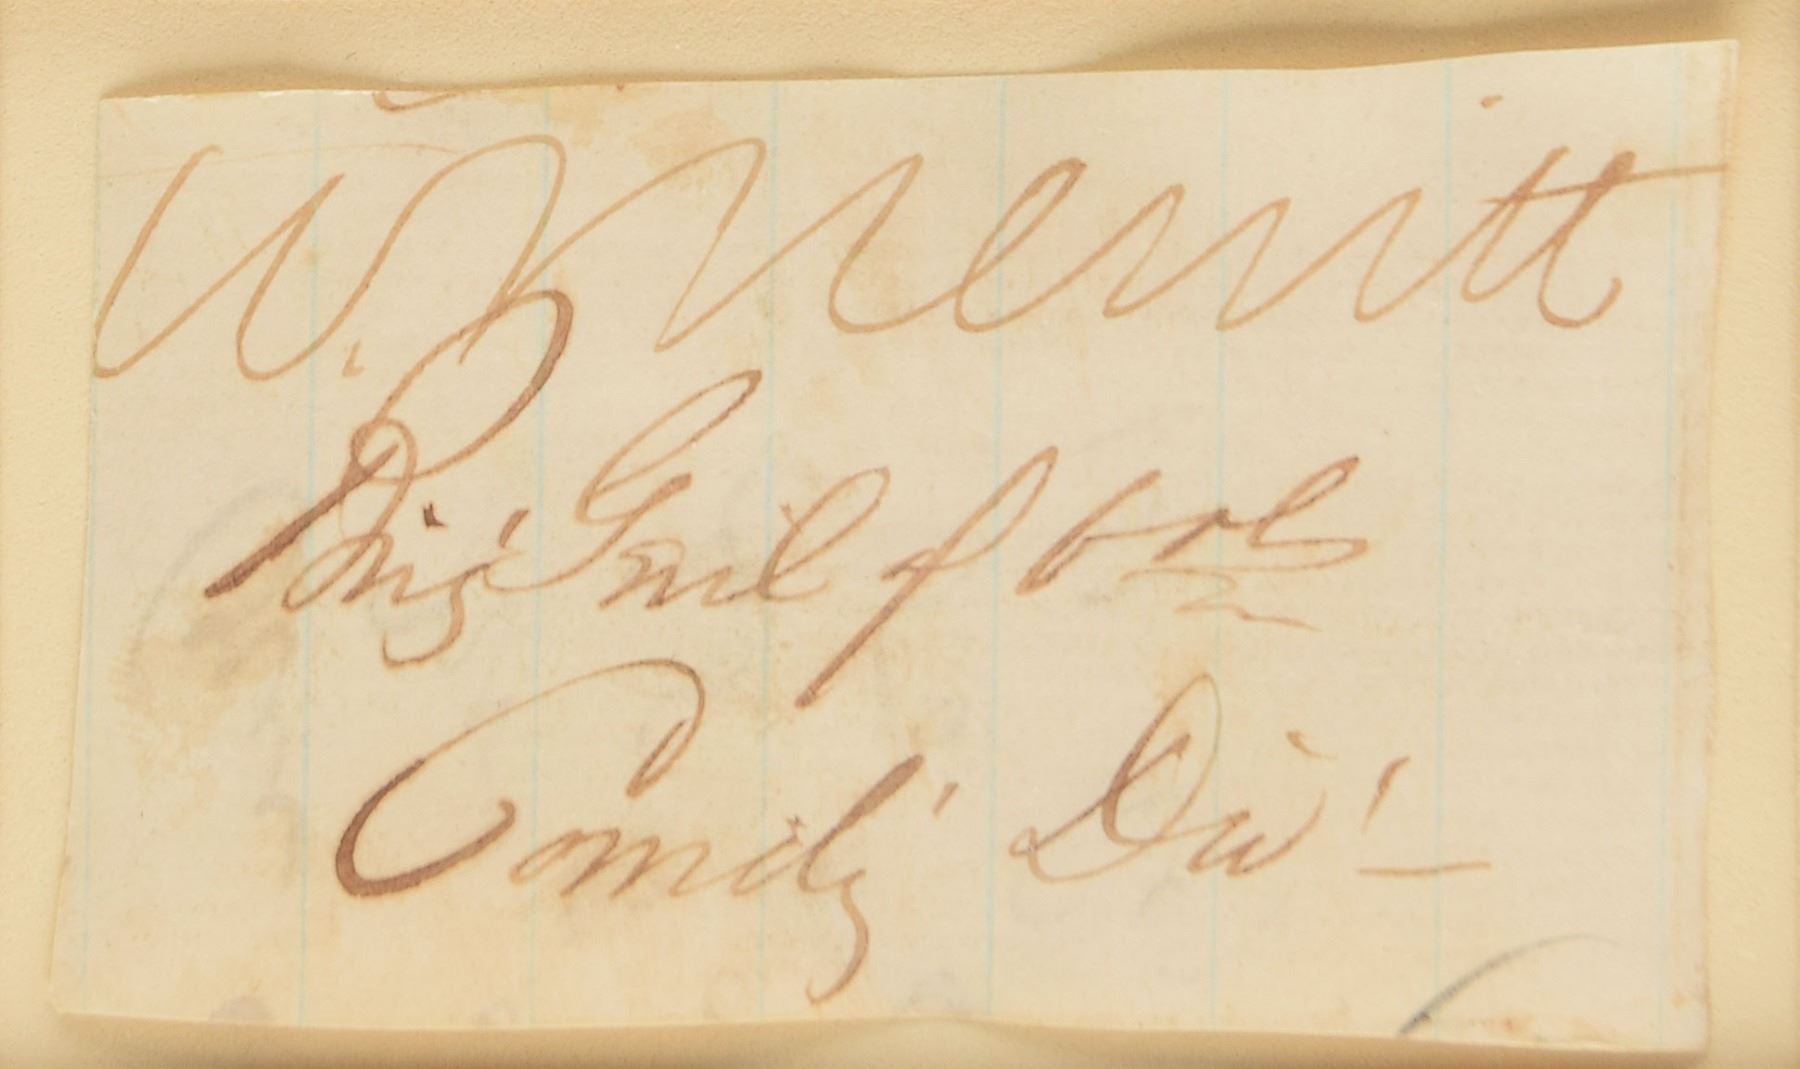 W. Merritt
Brig' Genl of Vols
Comdg' Div'